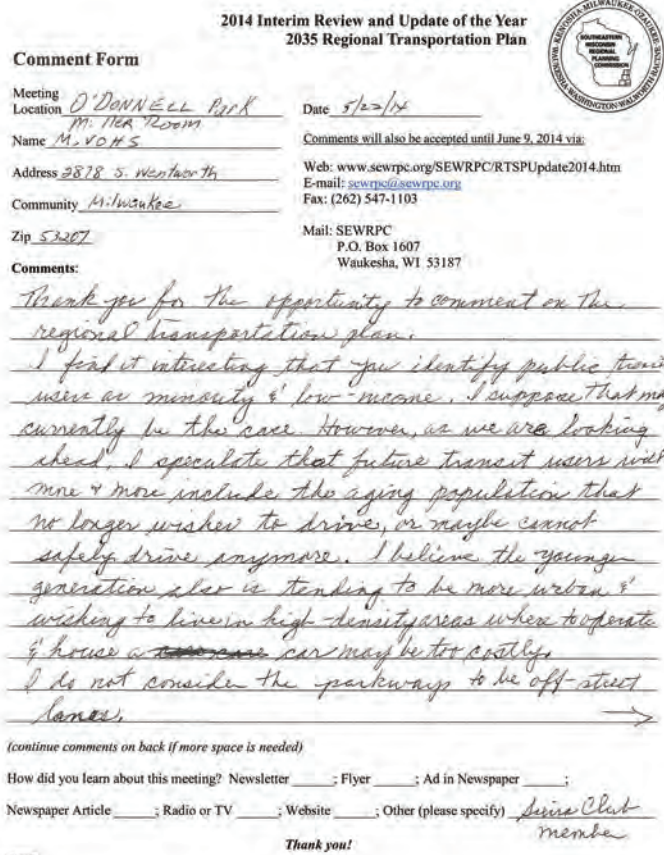 2014 Interim Review and Update of the Year
2035 Regional Transportation Plan
KENOSHA MILWAUKEE OZAUKEE RACINE WALWORTH WASHINGTON WAUKESHA
SOUTHEASTERN
WISCONSIN
REGIONAL
PLANNING
COMMISSION
Comment Form
Meeting
Location O'DONNELL Park
Miller Room
Date 5/22/14
Name M. VOHS
Comments will also be accepted until June 9, 2014 via:
Address 2878 S. Wentworth
Web: www.sewrpc.org/SEWRPC/RTSPUpdate2014.htm
E-mail: sewrpc@sewrpc.org
Community Milwaukee
Fax: (262) 547-1103
Zip 53207
Mail: SEWRPC
P.O. Box 1607
Waukesha, WI 53187
Comments:
Thank you for the opportunity to comment on the
regional transportation plan.
I find it interesting that you identify public trans
users as minority & low-income. I suppose that ma
currently be the case. However, as we are looking
ahead, I speculate that future transit users will
more & more include the aging population that
no longer wishes to drive, or maybe cannot
safely drive anymore. I believe the younger
generation also is tending to be more urban &
wishing to live in high-density areas where to operate
& house a car may be too costly.
I do not consider the parkways to be off-street
lanes. →
(continue comments on back if more space is needed)
How did you learn about this meeting? Newsletter _____; Flyer _____; Ad in Newspaper _____;
Newspaper Article _____; Radio or TV _____; Website _____; Other (please specify) Sierra Club
member
Thank you!